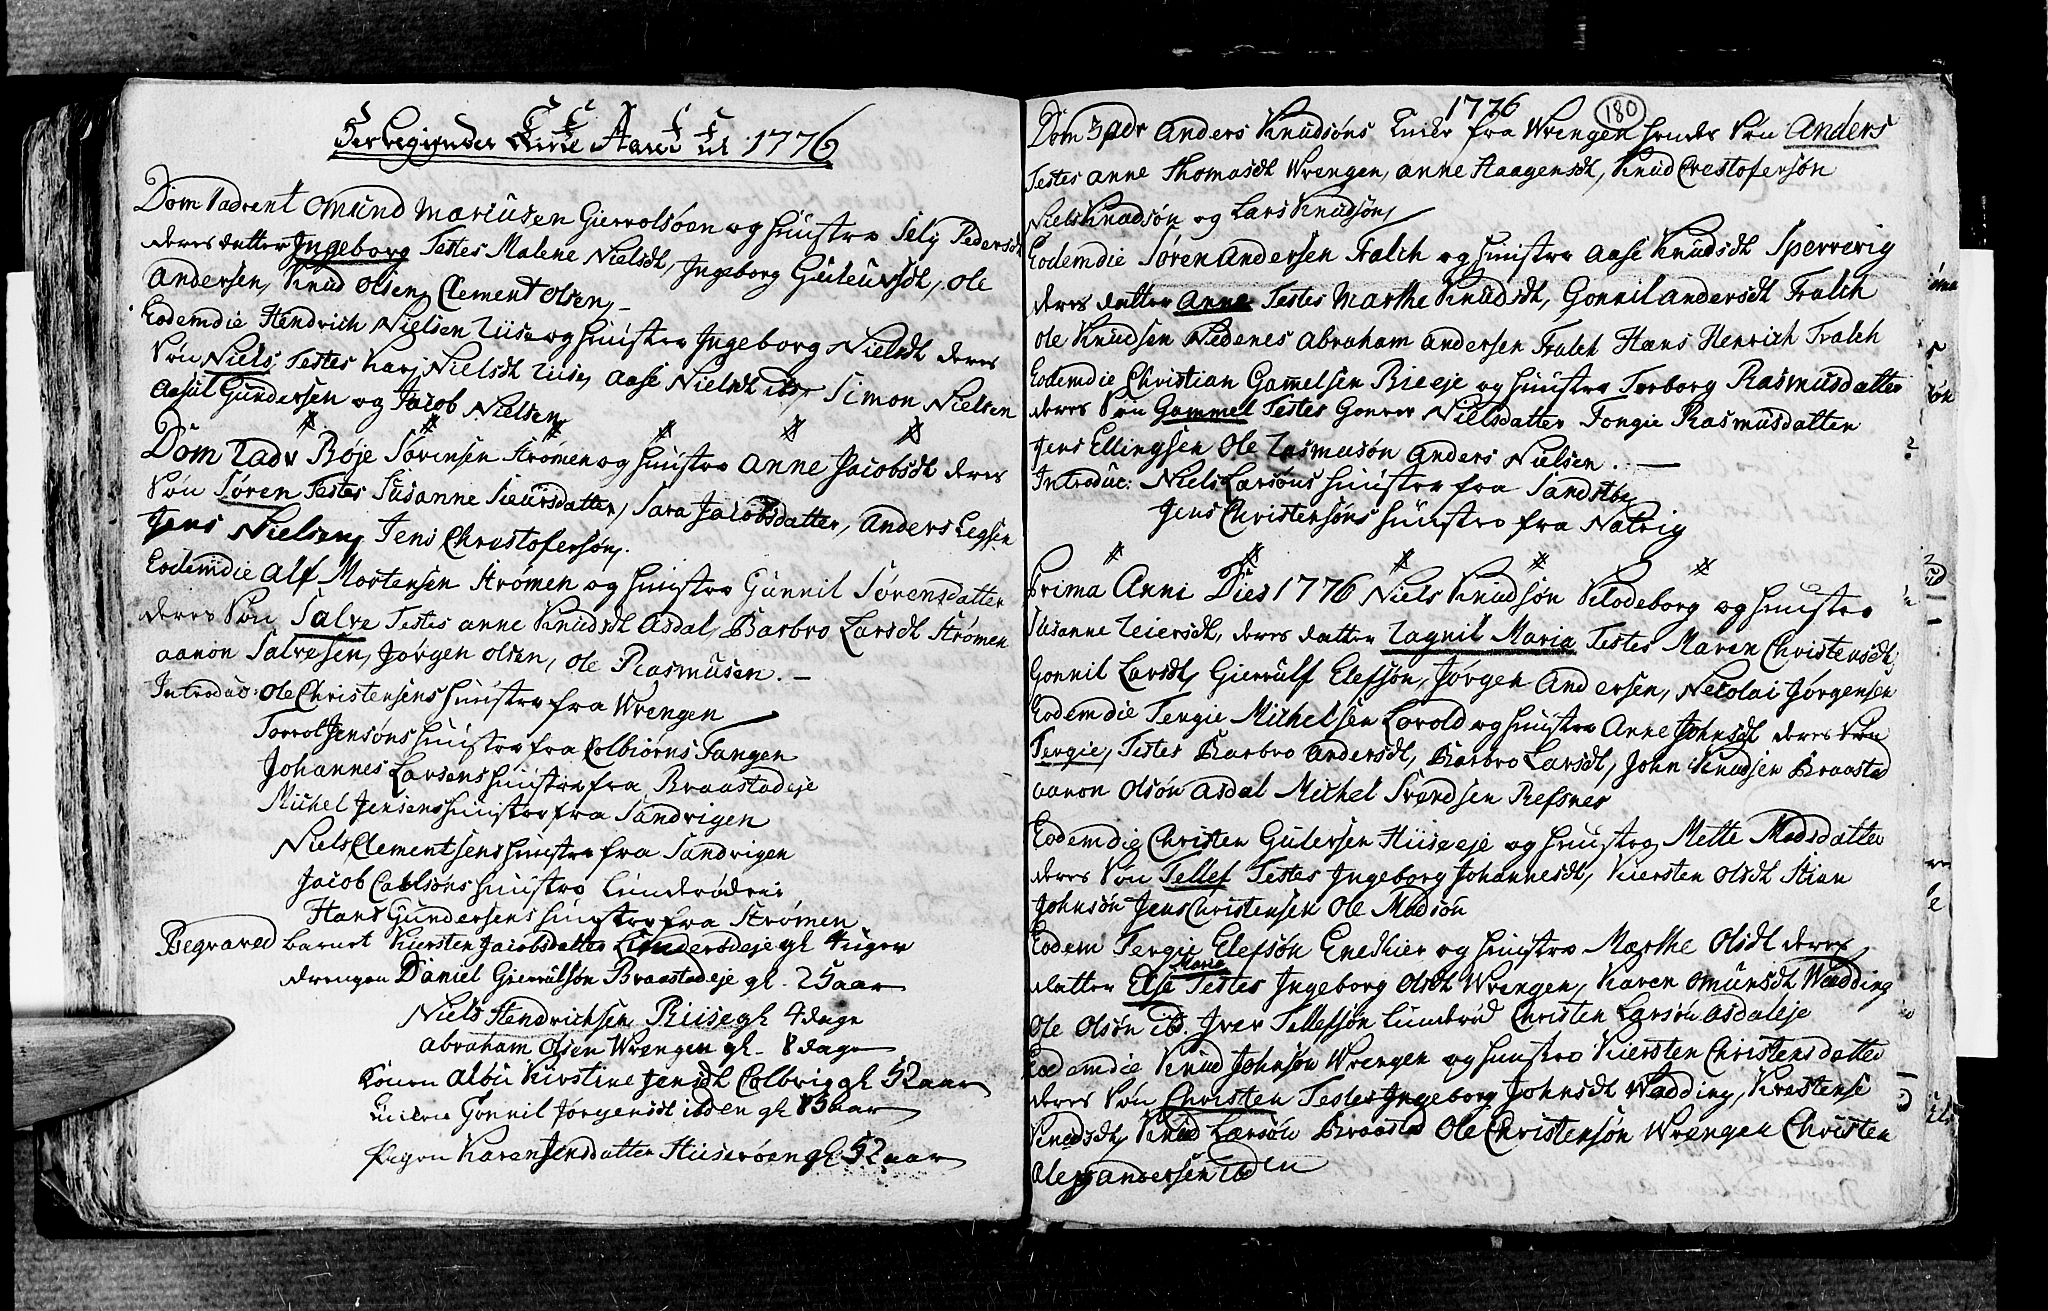 Her begynder Kirke Aaret til 1776
Dom 1 advent Omund Mariusen Gierrolsöen og hustroe Selj Pedersdt
deres datter Ingeborg Testes Malene Nielsdt, Ingeborg Guleursdt, Ole
Andersen, Knud Olsen, Clement Olsen,
Eodemdie Hendrich Nielsen Riise og hustroe Ingeborg Nielsdt deres
Søn Niels Testes Karj Nielsdt Riise, Aase Nielsdt ibd, Simon Nielsen
Aasul Gundersen og Jacob Nielsen,
Dom 2 adv Røje Sørensen Strømen og hustroe Anne Jacobsdt deres
Søn Søren Testes Susanne Siursdatter, Sara Jacobsdatter, Anders
Jens Nielsen, Jens Christofersøn,
Eodemdie Alf Mortensen Strømen og hustroe Gunnil Sørensdatter
deres Søn Salve Testes Anne Knudsdt Asdal, Barbro Larsdt Strømen
Aanon Salvesen, Jørgen Olsen, Ole Rasmusen. —
Introduc: Ole Christensens hustroe fra Wrengen
Torrol Jensøns hustroe fra Colbiørns Tangen
Johannes Larsens hustroe fra Braastadeje
Michel Jensens hustroe fra Sandvigen
Niels Clementsens hustroe fra Sandvigen
Jacob Carlsøns hustroe
Hans Gundersens hustroe fra Strømen
Begraved barnet Kiersten Jacobsdatter gl 4 uger
drengen Daniel Gierrulsøn Braastadeje gl. 25 aar
Niels Hendrichsen Riise gl 4 dage
Abraham Olsen Wrengen gl. 8 dage
Konen Kirstine Jensdt Colbrig gl 52 aar
Enken Gonnil Jørgensdt ibden gl 85 aar
Pigen Karen Jensdatter Huserøen gl 52 aar
1776
180
Dom 3 adv Anders Knudsøns Enke fra Wrengen hendes Søn Anders
Testes Anne Thomasdt Wrengen, Anne Haagensdt, Knud Crestofersøn
Niels Knudsøn og Lars Knudsøn,
Eodemdie Søren Andersen Fralch og hustroe Aase Knudsdt Sperrevig
deres datter Anne Testes Marthe Knudsdt, Gonnil Andersdt Fralch
Ole Knudsen Nedenes Abraham Andersen Fralch Hans Henrich Fralch
Eodemdie Christian Gammelsen Bieeje og hustroe Torborg Rasmusdatter
deres Søn Gammel Testes Nielsdatter Tongie Rasmusdatter
Jens Ellingsen Ole Rasmusøn Anders Nielsen. —
Introduc: Niels Larsøns hustroe fra Sandstbr
Jens Christensøns hustroe fra Natvig
Prima Anni Dies 1776 Niels Knudsøn Klodeborg og hustroe
Susanne Reiersdt, deres datter Ragnil Maria Testes Maren Christensdt,
Gonnil Larsdt, Gierrulf Elefsøn, Jørgen Andersen, Nicolai Jørgensen
Eodemdie Tergie Michelsen Lovold og hustroe Anne Johnsdt deres Søn
Tergie, Testes Barbro Andersdt, Barbro Larsdt, John Knudsen Braastad
Aanon Olsøn Asdal Michel Svendsen Refsnes
Eodemdie Christen Gulersen Huseeje og hustroe Mette Madsdatter
deres Søn Tellef Testes Ingeborg Johannesdt, Kiersten Olsdt Stian
Johnsøn Jens Christensen Ole Madsøn
Eodem Tergie Elefsøn Enedlier og hustroe Marthe Olsdt deres
Maria
datter Else Testes Ingeborg Olsdt Wrengen, Karen Omunsdt Wædding
Ole Olsøn ibd. Iver Tellefsøn Lunderød Christen Larsøn Asdaleje
Eodemdie Knud Johnsøn Wrengen og hustroe Kiersten Christensdatter
deres Søn Christen Testes Ingeborg Johnsdt Wædding, Kirstense
Knudsdt, Knud Larsøn Braastad Ole Christensøn Wrengen Christen
Oleg Andersen ibden